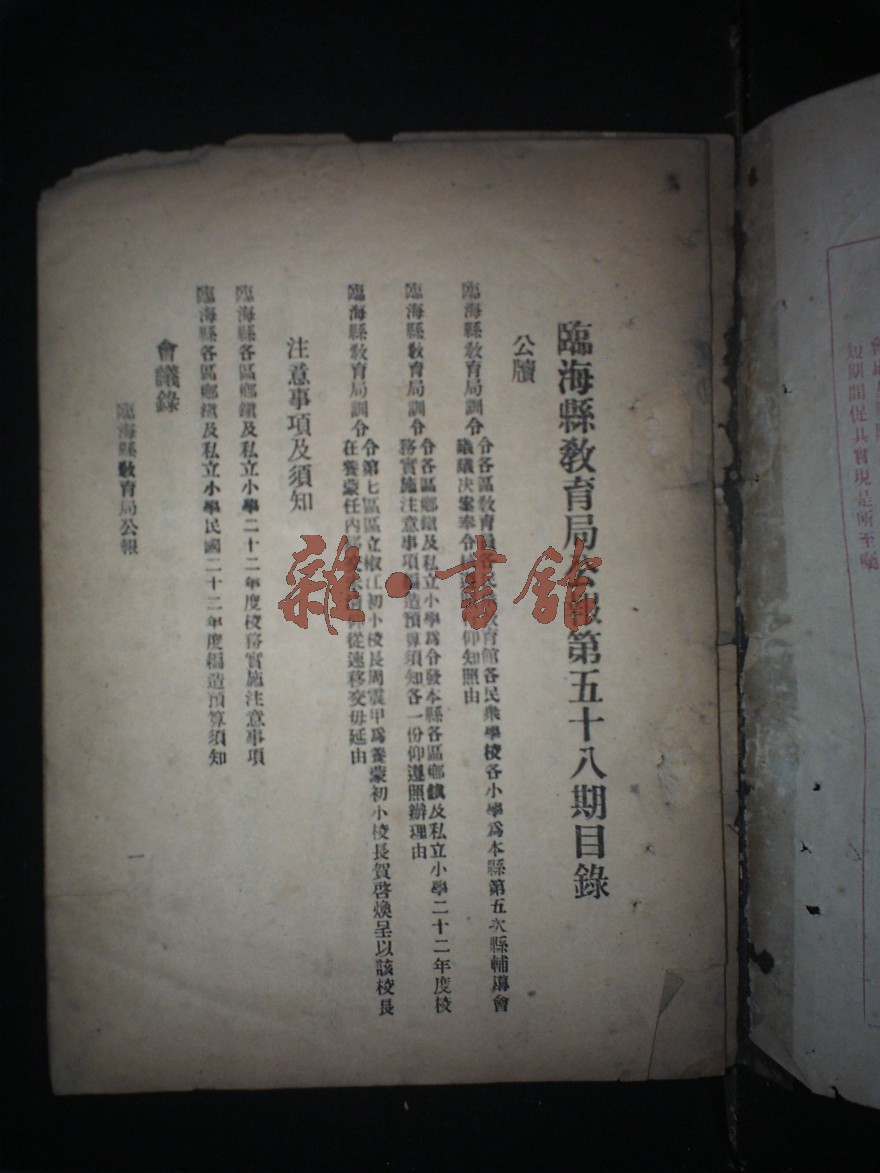 臨海縣教育局公報第五十八期目錄
公牘
臨海縣教育局訓令
令各區教育員各民衆教育館各民衆學校各小學爲本縣第五次縣輔導會
議議决案奉令 仰知照由
臨海縣教育局訓令
令各區鄉鎮及私立小學爲令發本縣各區鄉鎮及私立小學二十二年度校
務實施注意事項編造預算須知各一份仰遵照辦理由
臨海縣教育局訓令
令第七區區立椒江初小校長周震甲爲養蒙初小校長賀啓煥呈以該校長
在養蒙任內 從速移交毋延由
注意事項及須知
臨海縣各區鄉鎮及私立小學二十二年度校務實施注意事項
臨海縣各區鄉鎮及私立小學民國二十二年度編造預算須知
會議錄
臨海縣教育局公報
一
雜·書館
短期間促其實現是所至囑